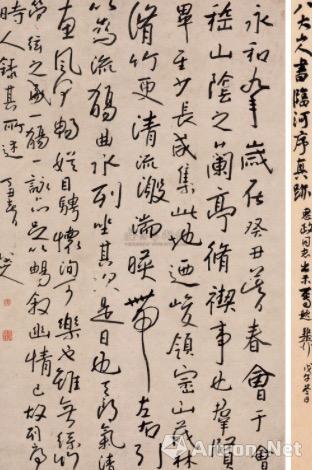 八大山人書臨河序真跡
永和九年歲在癸丑暮春會于會
稽山陰之蘭亭脩禊事也羣賢
畢至少長咸集此地迺峻領崇山茂林
脩竹更清流激湍暎帶左右引
以為流觴曲水列坐其次是日也天朗氣清
惠風和暢娛目騁懷洵可樂也雖無絲竹
管絃之盛一觴一詠亦足以暢敘幽情已故列序
時人錄其所述
Artron.Net